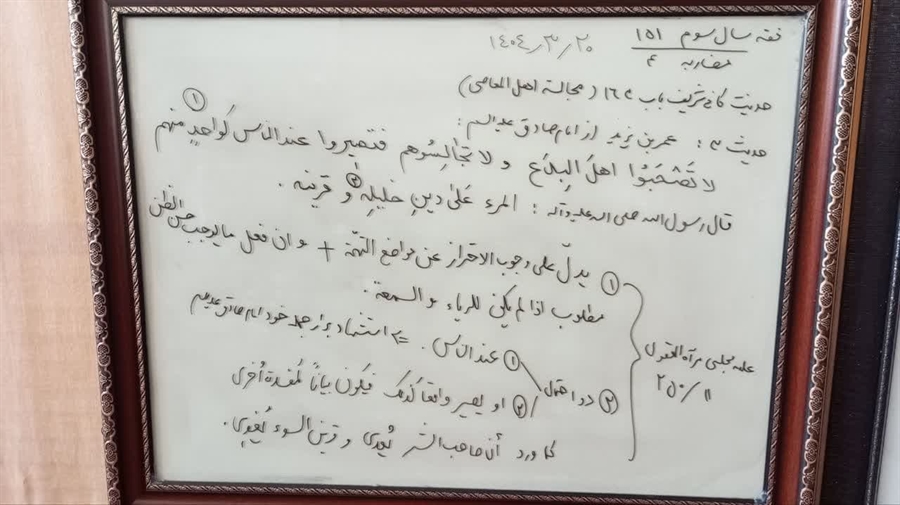 فقه سال سوم ۱۵۱
مضاربه ۴
۱۴۰۴/۳/۲۰
حدیث کافی شریف باب ۱۶۴ (مجالسة اهل المعاصی)
حدیث ۳: عمر بن یزید از امام صادق علیه السلام:
لا تَصْحَبُوا اهلَ البِدَعِ و لا تُجالِسُوهم فتصیروا عند الناس کواحدٍ منهم ①
قال رسول الله صلی الله علیه و آله: المرء عَلیٰ دینِ خلیلِهِ ② و قرینه.
① یدلّ علی وجوب الاحتراز عن مواضع التهمة + و ان فعل ما یوجب حسن الظن
مطلوب اذا لم یکن للریاء و السمعة.
② دو احتمال ① عند الناس. استشهاد برای جمله خود امام صادق علیه السلام
② او یصیر واقعا کذلک فیکون بیاناً لمفسدة أخری
کما ورد أن صاحب الشر یُعدِی و قرین السوء یُغوِی.
علامه مجلسی مرآة العقول
۱۱/۲۵۰